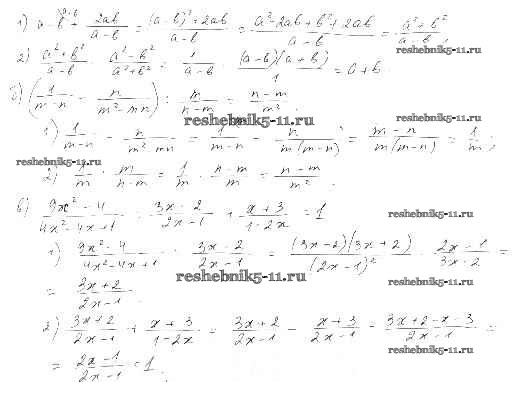 1) a-b + 2ab/(a-b) = ((a-b)²+2ab)/(a-b) = (a²-2ab+b²+2ab)/(a-b) = (a²+b²)/(a-b);
reshebnik5-11.ru
2) (a²+b²)/(a-b) · (a²-b²)/(a²+b²) = 1/(a-b) · (a-b)(a+b)/1 = a+b.
б) (1/(m-n) - n/(m²-mn)) : m/(n-m) = (n-m)/m².
reshebnik5-11.ru
1) 1/(m-n) - n/(m²-mn) = 1/(m-n) - n/(m(m-n)) = (m-n)/(m(m-n)) = 1/m;
reshebnik5-11.ru reshebnik5-11.ru
2) 1/m : m/(n-m) = 1/m · (n-m)/m = (n-m)/m².
в) (9x²-4)/(4x²-4x+1) : (3x-2)/(2x-1) + (x+3)/(1-2x) = 1
reshebnik5-11.ru
1) (9x²-4)/(4x²-4x+1) : (3x-2)/(2x-1) = (3x-2)(3x+2)/(2x-1)² · (2x-1)/(3x-2) =
reshebnik5-11.ru
= (3x+2)/(2x-1).
reshebnik5-11.ru
2) (3x+2)/(2x-1) + (x+3)/(1-2x) = (3x+2)/(2x-1) - (x+3)/(2x-1) = (3x+2-x-3)/(2x-1) =
reshebnik5-11.ru
= (2x-1)/(2x-1) = 1.